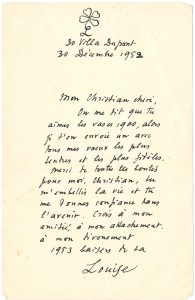 30 Villa Dupont
30 Décembre 1952
Mon Christian chéri,
On me dit que tu
aimes les vases 1900, alors
je t'en envoie un avec
tous mes vœux les plus
tendres et les plus fidèles.
Merci de toutes tes bontés
pour moi, Christian, tu
m'embellis la vie et tu
me donnes confiance dans
l'avenir. Crois à mon
amitié, à mon attachement.
à mon dévouement
1953 baisers de ta
Louise